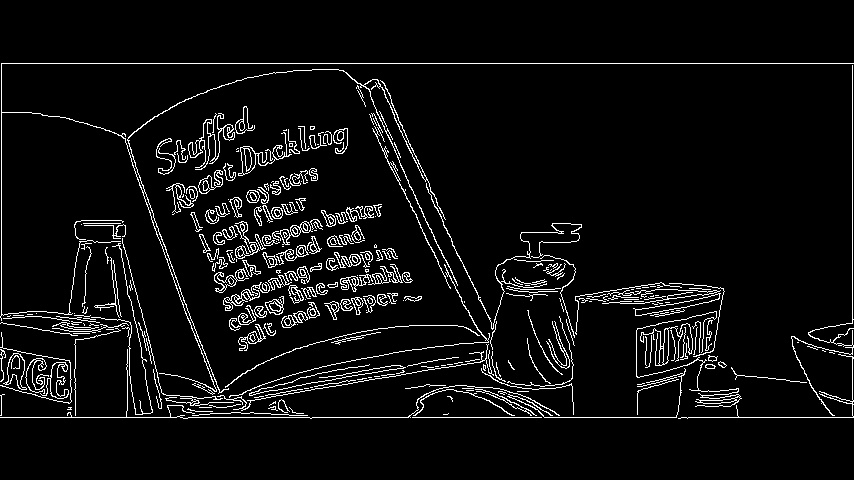 Stuffed
Roast Duckling
1 cup oysters
1 cup flour
½ tablespoon butter
Soak bread and
seasoning~chop in
celery fine~sprinkle
salt and pepper~
AGE
THYME